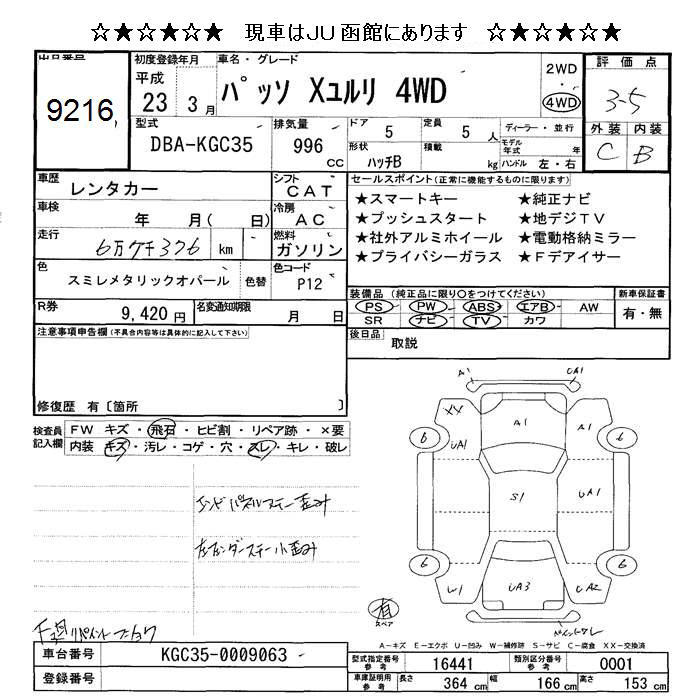 ☆★☆★☆★ 現車はJU函館にあります ☆★☆★☆★
出品番号
9216
初度登録年月
平成
23 3月
車名・グレード
パッソ Xユルリ 4WD
2WD
・
4WD
評価点
3-5
外装 内装
C B
型式
DBA-KGC35
排気量
996
cc
ドア
5
定員
5 人
形状
ハッチB
積載
kg
ディーラー・並行
モデル年式 年
ハンドル 左・右
車歴
レンタカー
シフト
CAT
車検
年 月( 日)
冷房
AC
走行
6万7千376 km
燃料
ガソリン
色
スミレメタリックオパール
色替
色コード
P12
R券
9,420円
名変通知期限
月 日
セールスポイント(正常に機能するものに限ります)
★スマートキー ★純正ナビ
★プッシュスタート ★地デジTV
★社外アルミホイール ★電動格納ミラー
★プライバシーガラス ★Fデアイサー
装備品(純正品に限り○をつけてください)
PS PW ABS エアB AW
SR ナビ TV カワ
新車保証書
有・無
後日品
取説
注意事項申告欄(不具合内容等は具体的に記入して下さい)
修復歴 有〔箇所 〕
検査員記入欄
FW キズ・飛石・ヒビ割・リペア跡・×要
内装 キズ・汚レ・コゲ・穴・スレ・キレ・破レ
A1 UA1
XX A1 A1
6 6
UA1
S1 UA1
6 6
U1 UA3 UA2
有
スペア
A-キズ E-エクボ U-凹み W-補修跡 S-サビ C-腐食 XX-交換済
車台番号
KGC35-0009063
登録番号
型式指定番号
参考
16441
類別区分番号
参考
0001
車庫証明用
参考
長さ 364 cm 幅 166 cm 高さ 153 cm